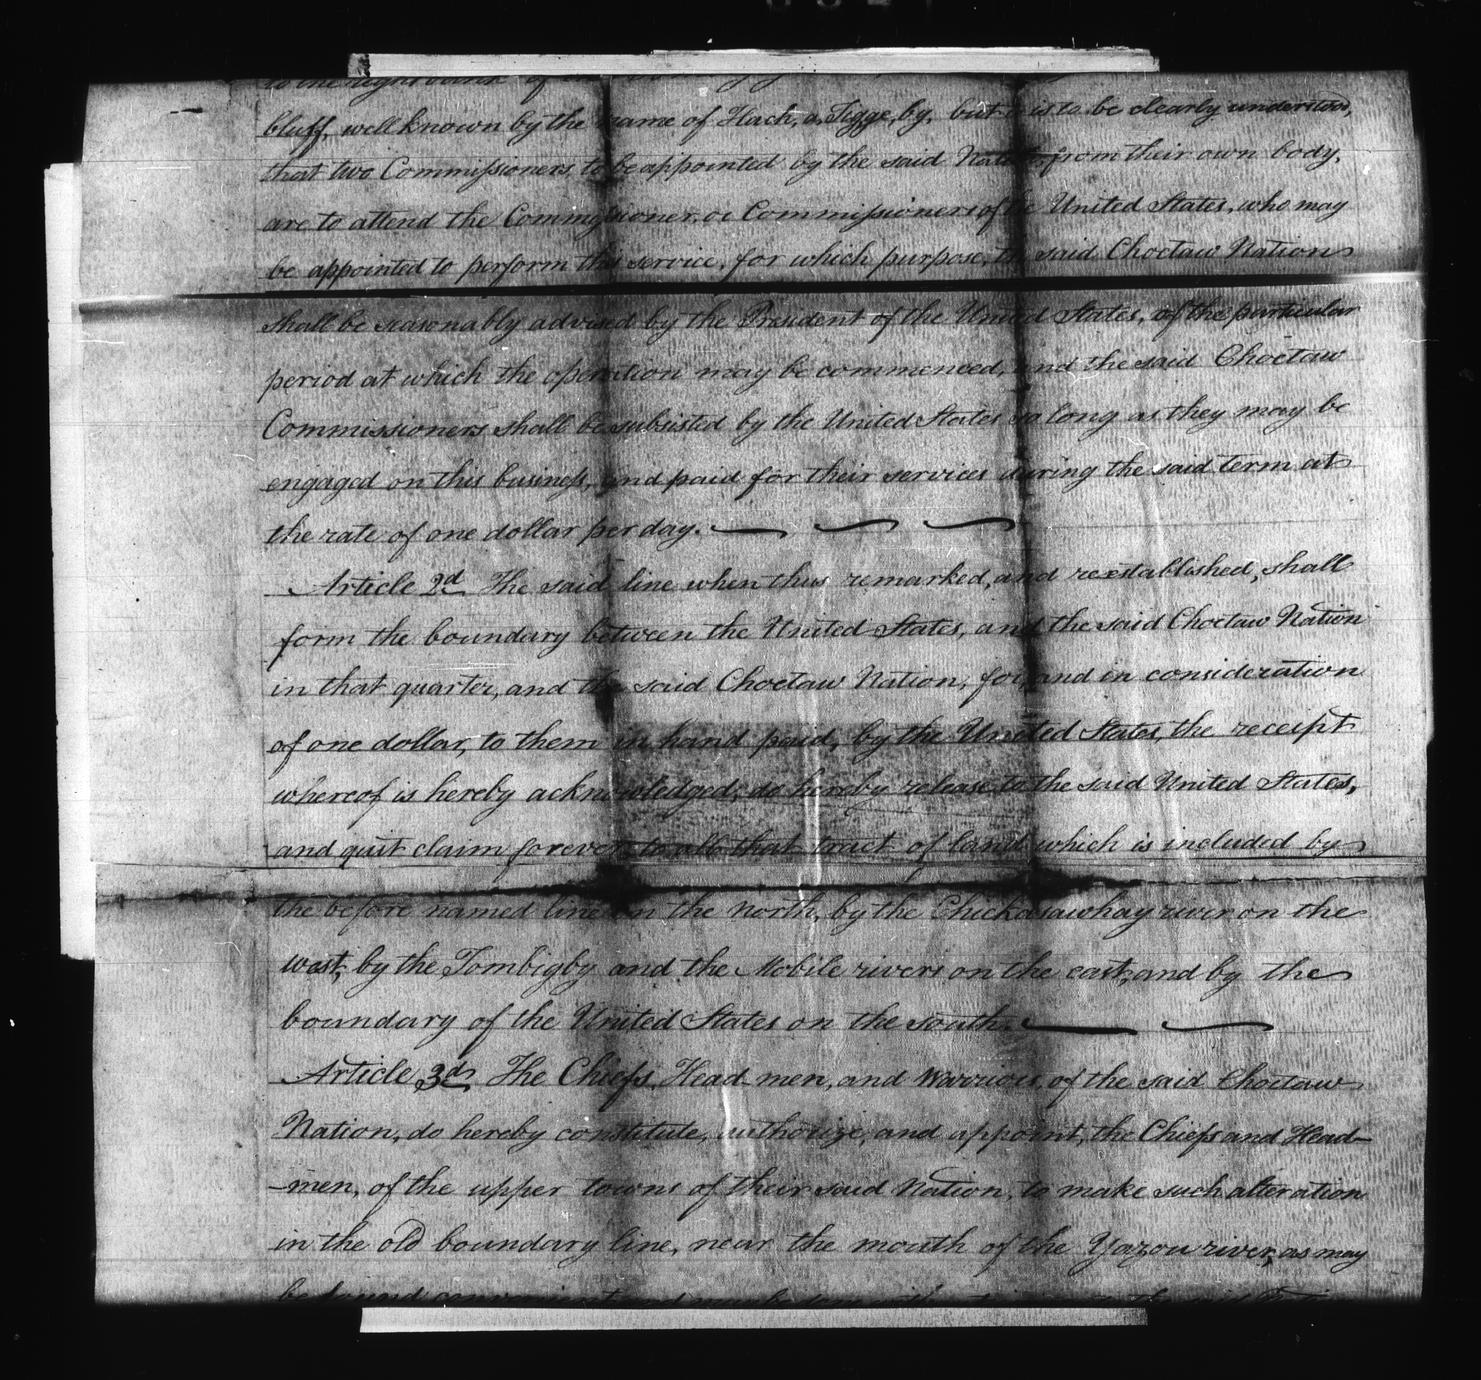 to the right bank of
bluff, well known by the name of Hach, a, Tigge, by, but is to be clearly understood,
that two Commissioners, to be appointed by the said Nation, from their own body,
are to attend the Commissioner, or Commissioners of the United States, who may
be appointed to perform this service, for which purpose, the said Choctaw Nation
shall be reasonably advised by the President of the United States, of the particular
period at which the operation may be commenced, and the said Choctaw
Commissioners shall be subsisted by the United States so long as they may be
engaged on this business, and paid for their services during the said term at
the rate of one dollar per day.
Article 2d The said line when thus remarked, and re-established, shall
form the boundary between the United States, and the said Choctaw Nation
in that quarter, and the said Choctaw Nation, for, and in consideration
of one dollar, to them in hand paid, by the United States, the receipt
whereof is hereby acknowledged, do hereby release to the said United States,
and quit claim forever, to all that tract of land which is included by
the before named line on the north, by the Chickasawhay river on the
west, by the Tombigby and the Mobile rivers on the east, and by the
boundary of the United States on the south.
Article 3d The Chiefs, Head-men, and Warriors, of the said Choctaw
Nation, do hereby constitute, authorize, and appoint, the Chiefs and Head-
-men, of the upper towns of their said Nation, to make such alteration
in the old boundary line, near the mouth of the Yazou river, as may
be found convenient and may be done